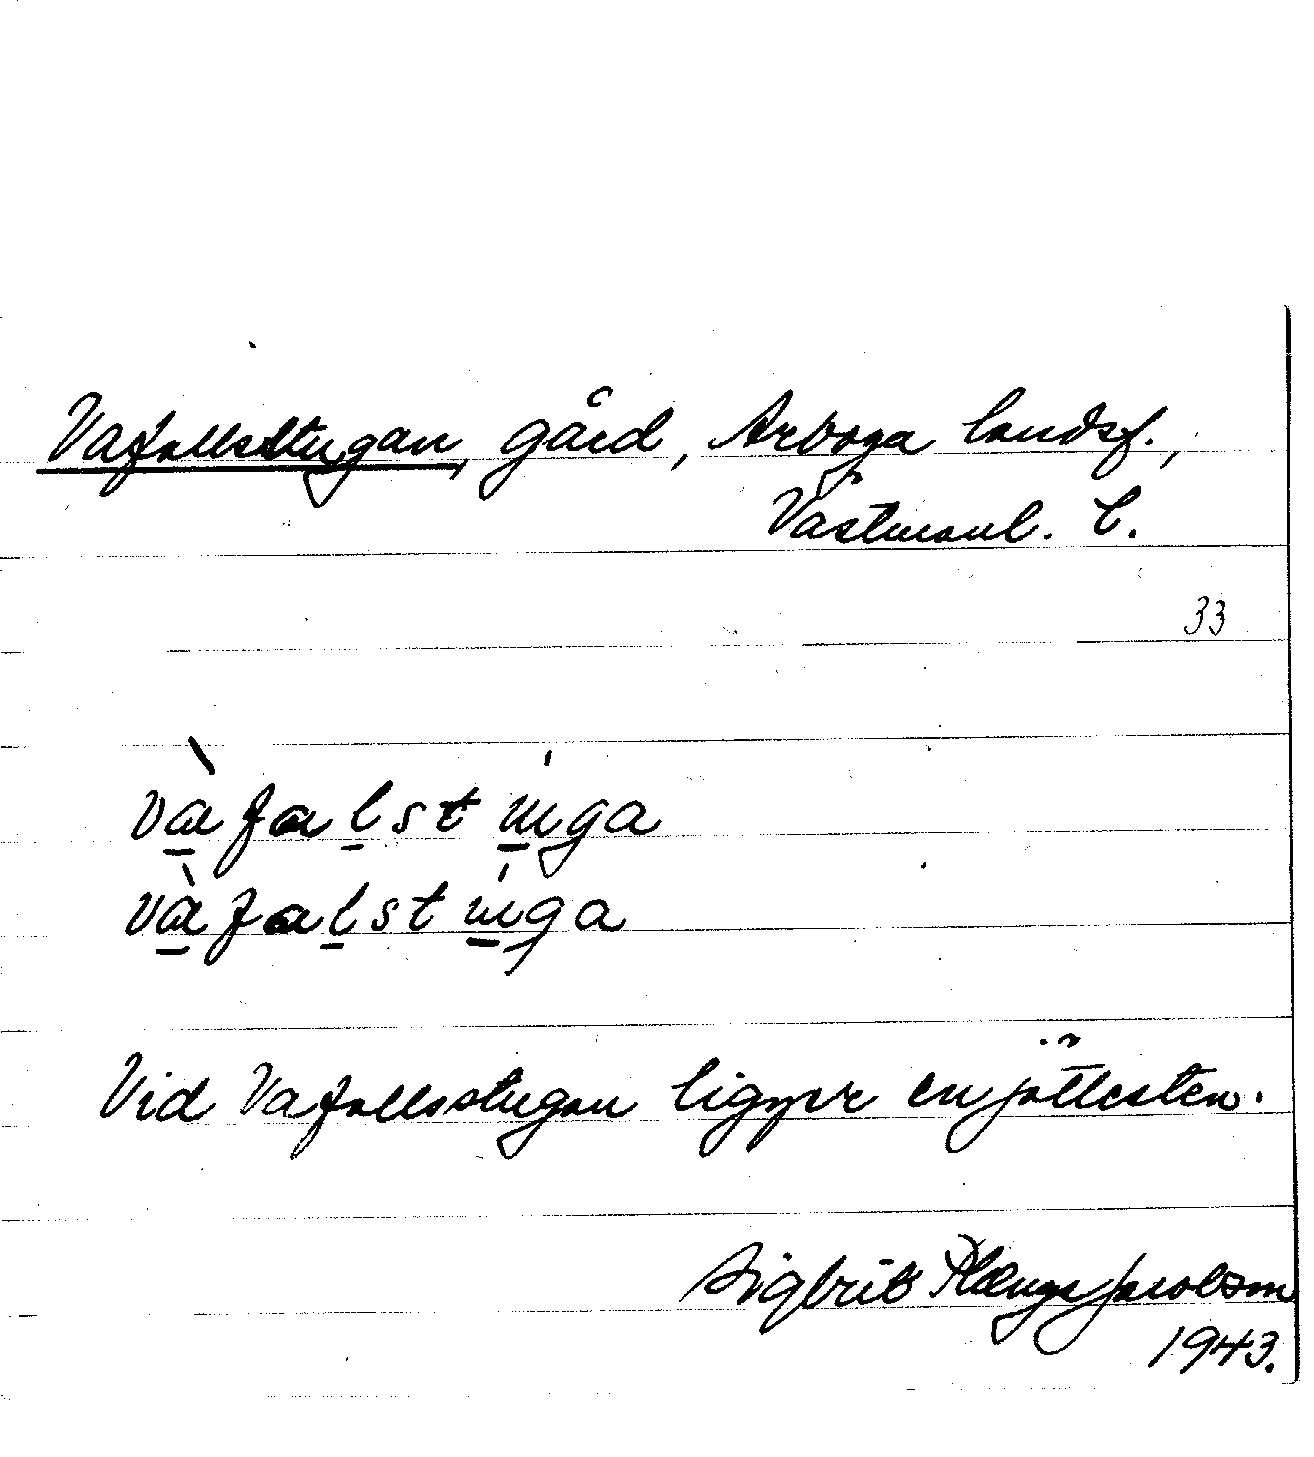 Vafallsstugan, gård, Arboga landsf.,
Västmanl. l.
33
vàfalstúga
vàfalstúga
Vid Vafallsstugan ligger en jättesten.
Sigbrit Plænge Jacobson
1943.